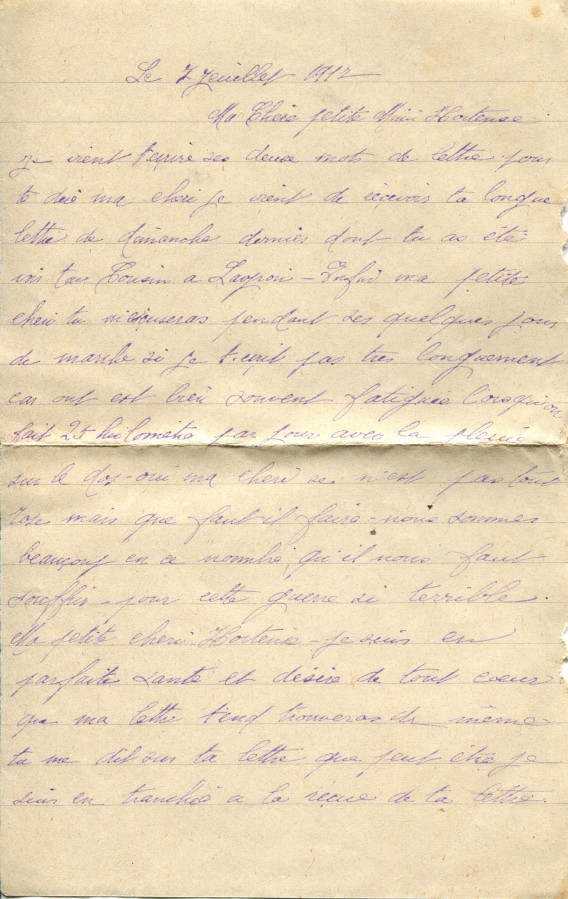 Le 7 Jeuillet 1917
Ma Cheie petite Mimi Hortense
je vient t'ecrire ses deux mots de lettre pour
te dire ma cheri je vient de recevoir ta longue
lettre de dimanche dernier dont tu as étée
voir ton Cousin a Enfin ma petite
cheri tu m'éxcuseras pendant ses quelques jours
de marche si je t'ecrit pas tres longuement
car ont est bien souvent fatiguée lorsqu'on
fait 25 kilometre par jour avec la pleuie
sur le dos - oui ma cheri se n'est pas tout
rose mais que faut il faire - nous sommes
beaucoup en ce nombre qu'il nous faut
souffrir - pour cette guerre si terrible.
Ma petite cheri Hortense - je suis en
parfaite santé et désire de tout coeur
que ma lettre t'end trouveras de même
tu me dit sur ta lettre que peut être je
suis en tranchée a la recue de ta lettre.